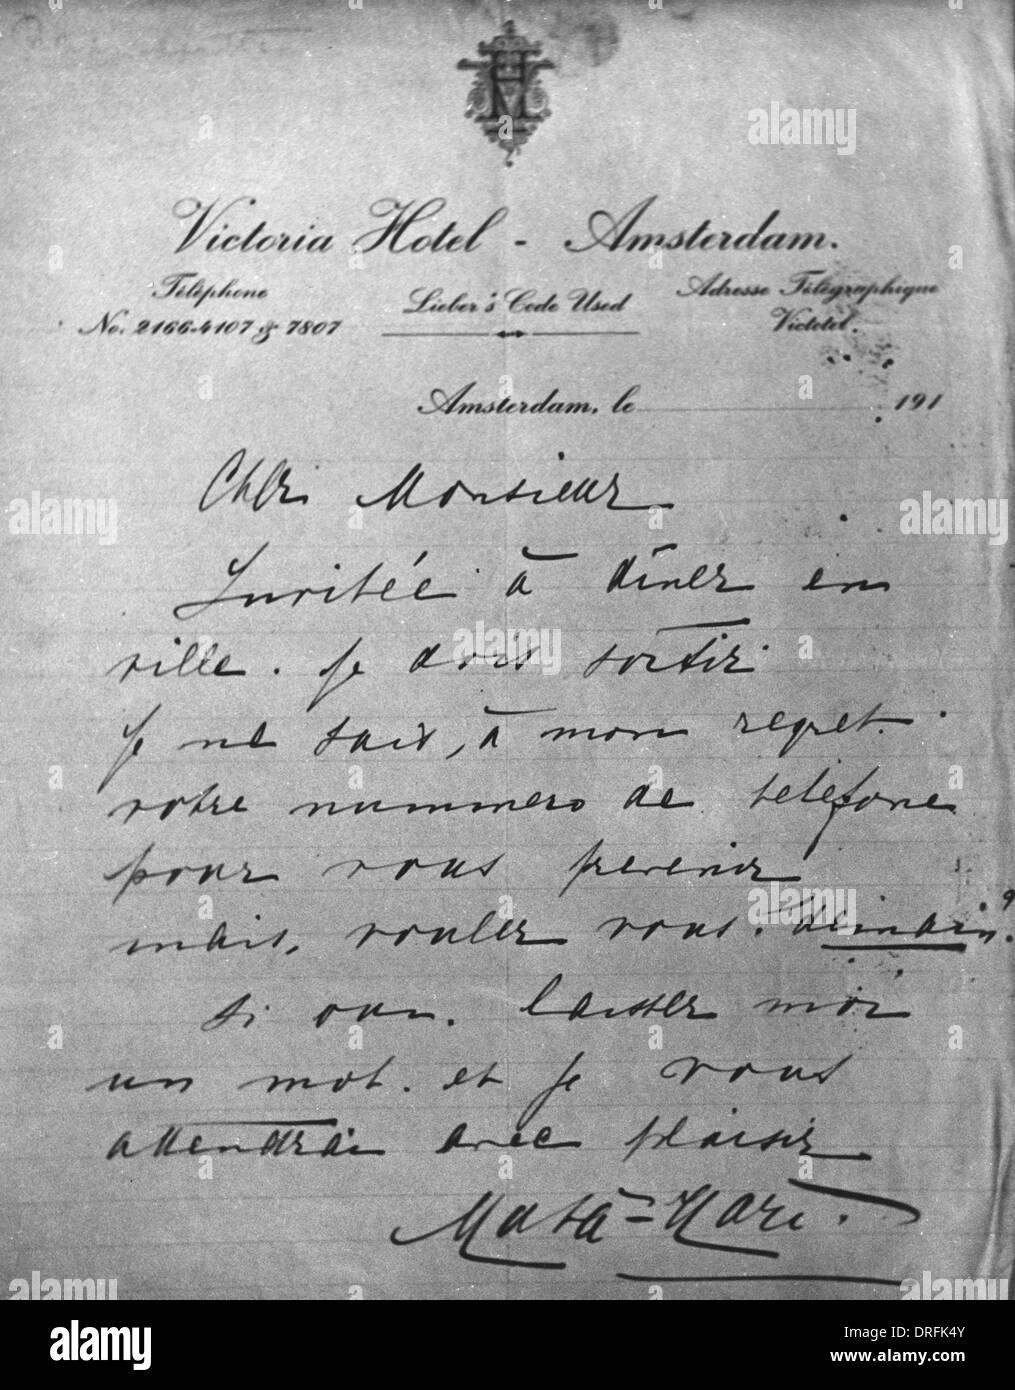 Victoria Hotel - Amsterdam.
Téléphone
No. 2166-4107 & 7807
Lieber's Code Used
Adresse Télégraphique
Victotel.
Amsterdam, le 191
Cher Monsieur
Invitée à dîner en
ville. je dois sortir
Je ne sais, à mon regret.
votre nummero de telefone
pour vous prevenir
mais, voulez vous. demain?
si oui. laissez moi
un mot. et je vous
attendrai avec plaisir
Mata-Hari.
alamy
Image ID: DRFK4Y
www.alamy.com